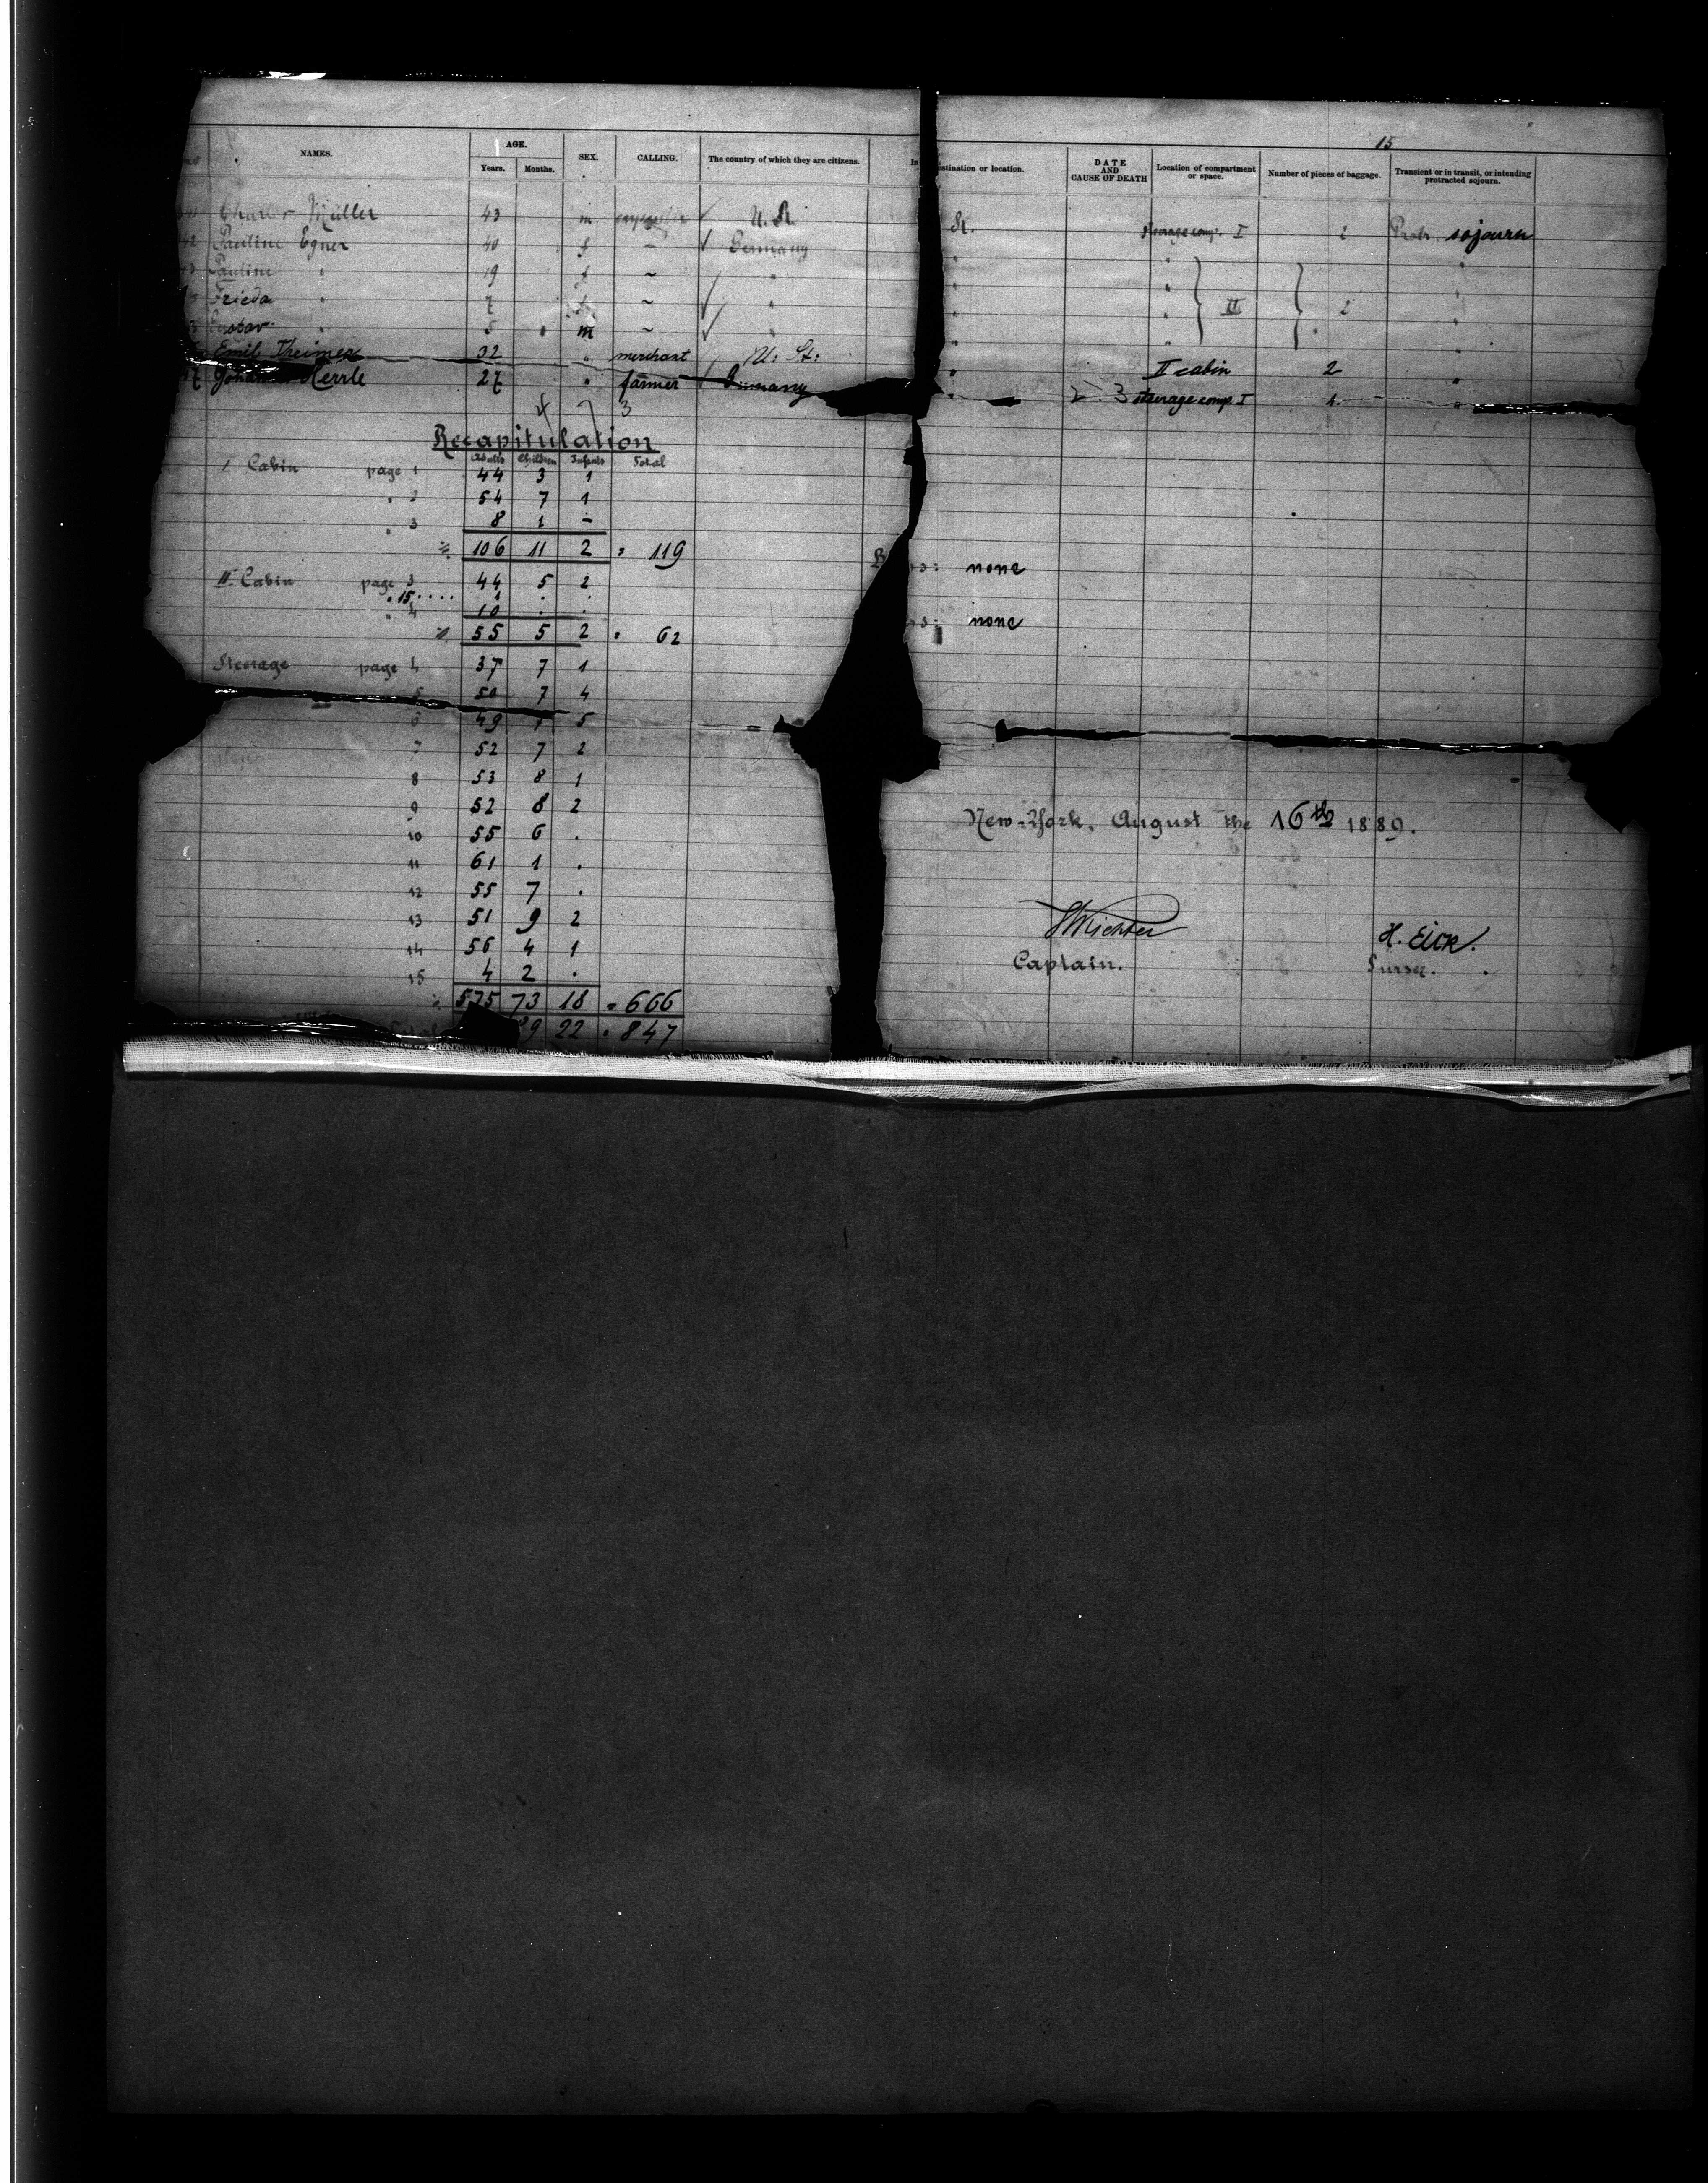 15
NAMES. AGE. Years. Months. SEX. CALLING. The country of which they are citizens. In stination or location. DATE AND CAUSE OF DEATH Location of compartment or space. Number of pieces of baggage. Transient or in transit, or intending protracted sojourn.
Charles Müller 43 m U. St. St. steerage comp. I 2 Protr. sojourn
Pauline Egner 40 f - Germany
Pauline " 19 f ~ " " " "
Frieda " 7 f ~ " " " II 2 "
Gustav " 5 m ~ " " " "
Emil Theimer 32 " merchant U. St. " II cabin 2
Johannes Herrle 27 " farmer Germany " 2 3 steerage comp I 1 "
4 7 3
Recapitulation
Adults Children Infants Total
I. Cabin page 1 44 3 1
" 2 54 7 1
" 3 8 1 -
106 11 2 = 119
none
II. Cabin page 3 44 5 2
" 15 .... 1 . .
" 4 10 . .
none
55 5 2 = 62
Steerage page 4 37 7 1
5 50 7 4
6 49 7 5
7 52 7 2
8 53 8 1
9 52 8 2
New-York, August the 16th 1889.
10 55 6 .
11 61 1 .
12 55 7 .
13 51 9 2
H. Eick.
14 56 4 1
Captain. Purser.
15 4 2 .
575 73 18 = 666
Total 89 22 = 847